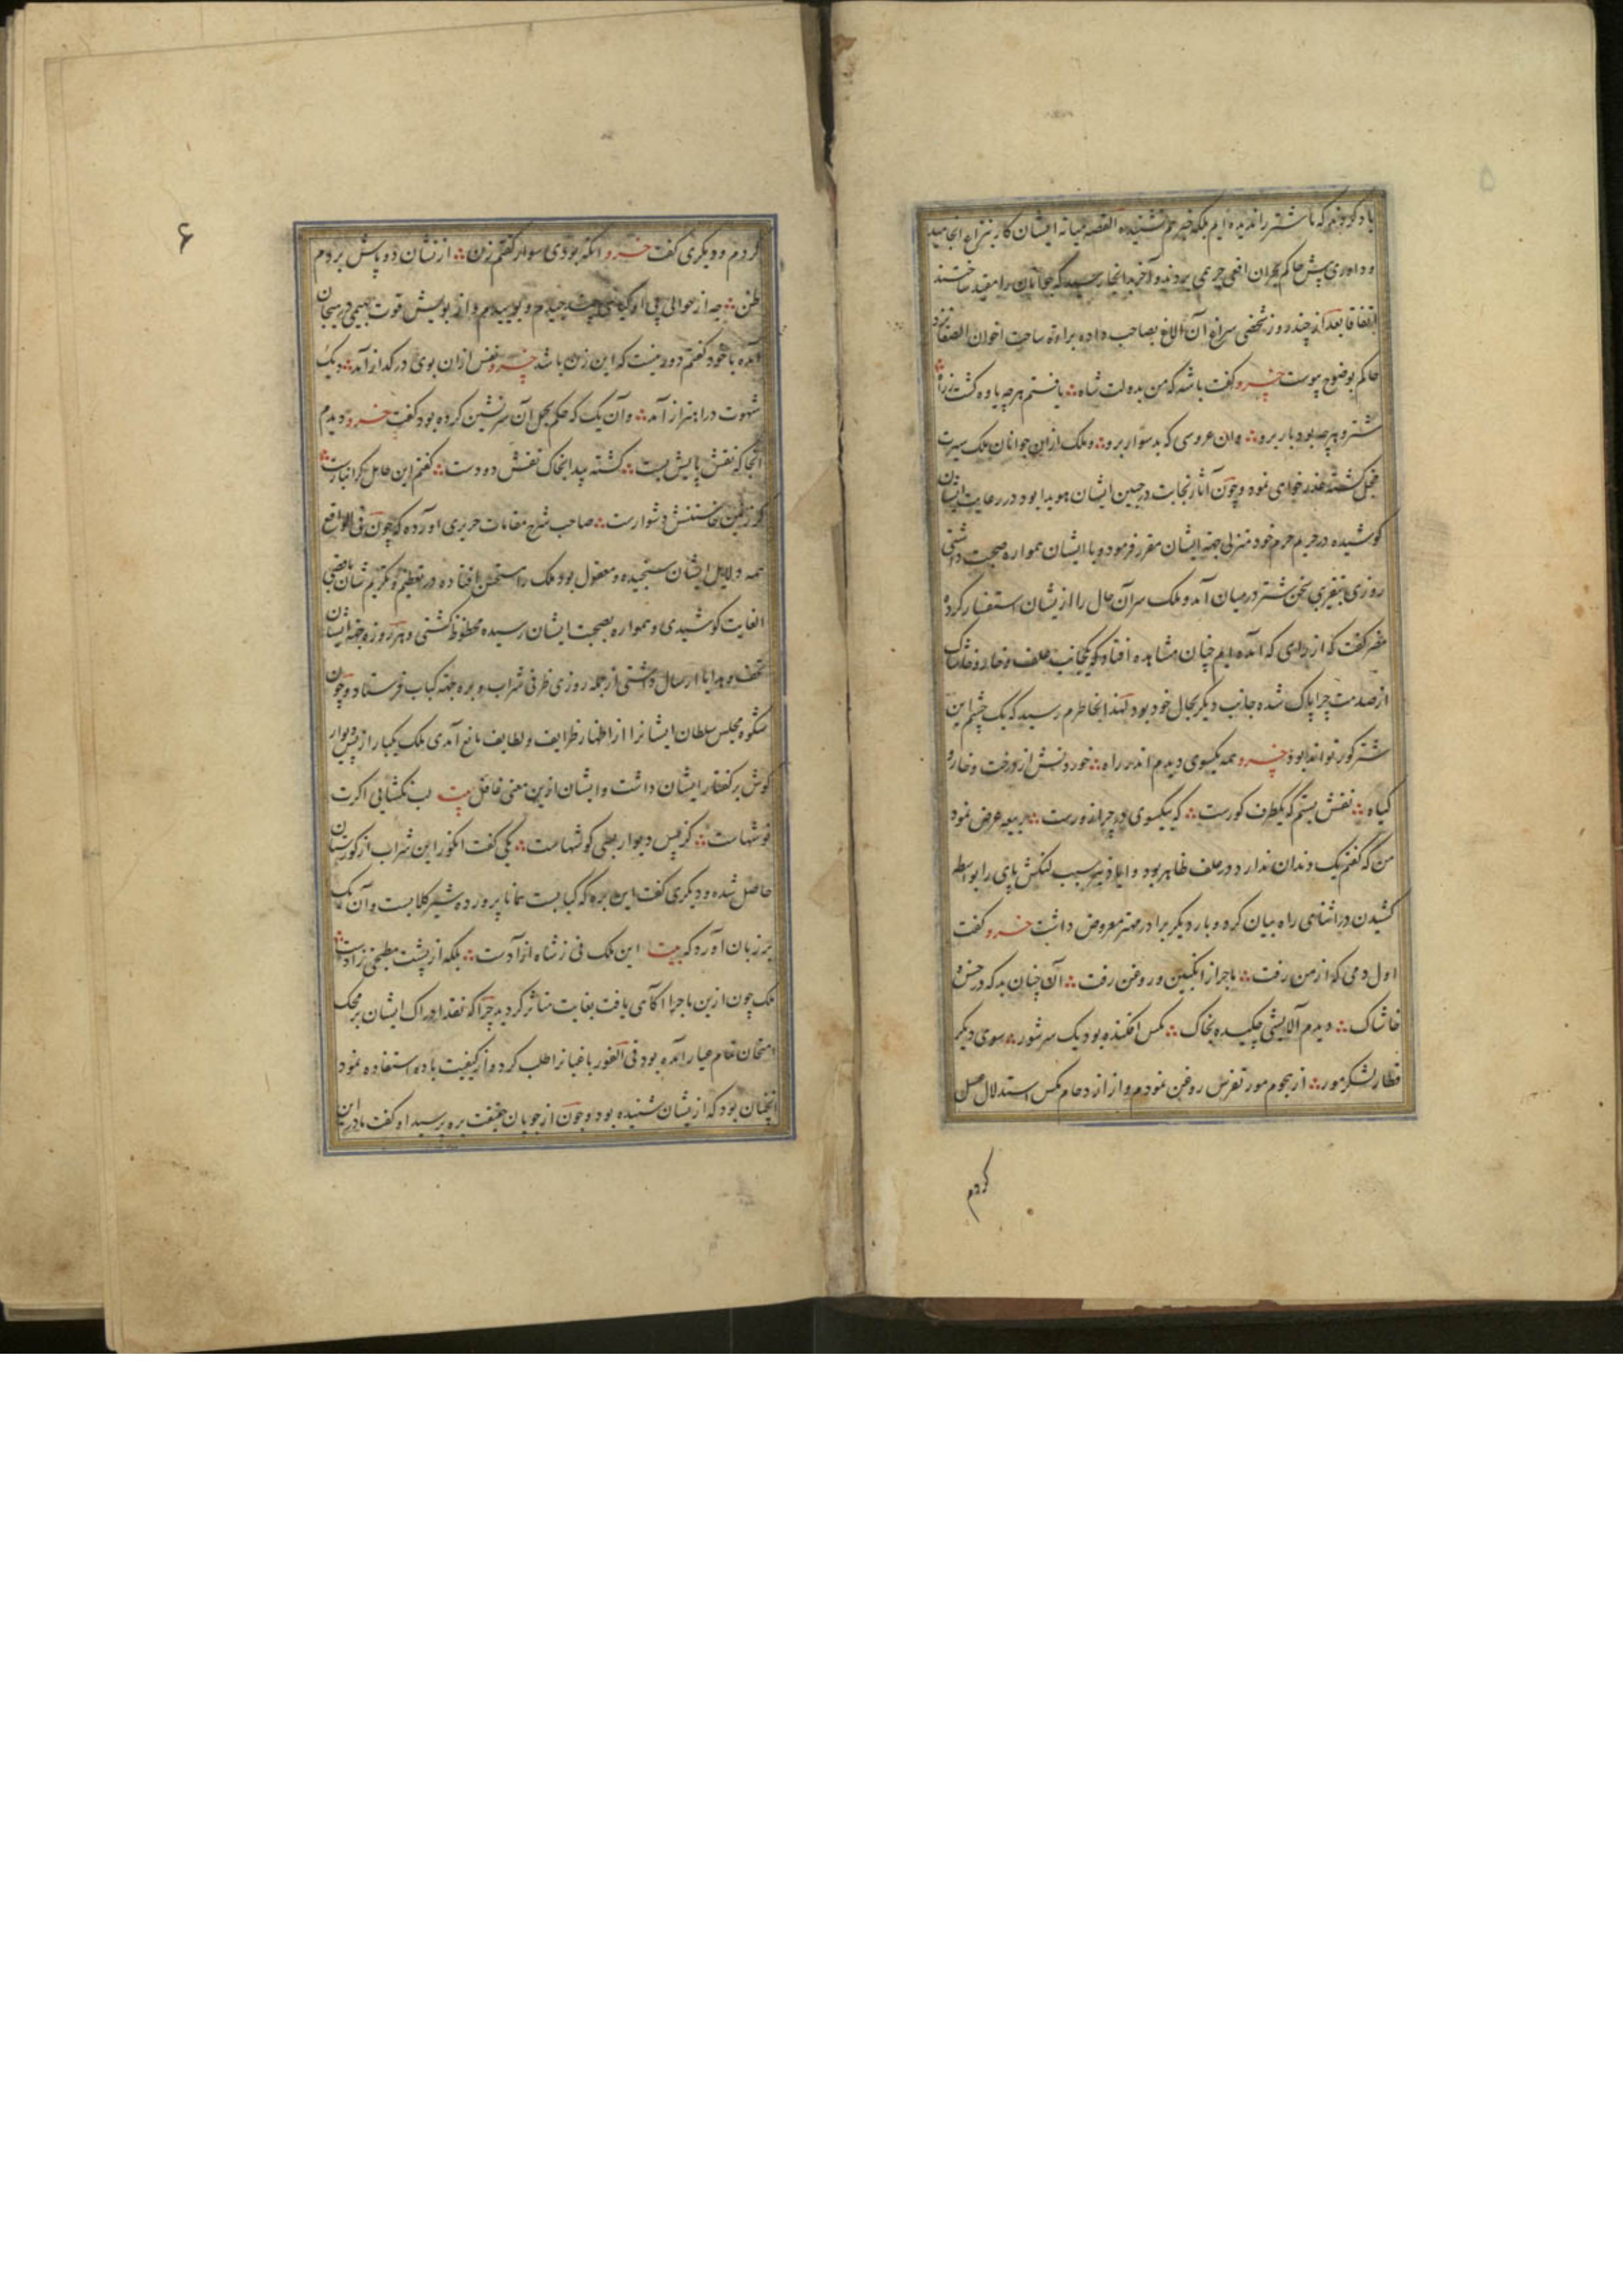 ۵
یاد کردند که ما شتر را ندیده ایم بلکه خبر هم نشنیده القصه میانه ایشان کار بنزاع انجامید
و داوری پیش حاکم نجران افعی جرهمی بردند و آخر بدانجا رسید که جوانان را مقید ساختند
اتفاقا بعد از چند روز شخصی سراغ آن الاغ بصاحب داده براءة ساحت اخوان الصفا نزد
حاکم بوضوح پیوست خسرو گفت باشد که من بدولت شاه ∴ یافتم هرچه یاوه گشت ز راه ∴
شتر و هرچه بود بار برو ∴ وان عروسی که بد سوار برو ∴ و ملک ازین جوانان ملک سیرت
خجل گشته عذر خواهی نمود و چون آثار نجابت در جبین ایشان هویدا بود در رعایت ایشان
کوشیده در حریم حرم خود منزلی جهة ایشان مقرر فرمود و با ایشان همواره صحبت داشتی
روزی بتقریبی سخن شتر در میان آمد و ملک سر آن حال را از ایشان استفسار کرد
مضر گفت که از راهی که آمده ایم چنان مشاهده افتاد که یکجانب علف و خار و خاشاک
از صدمت چرا پاک شده جانب دیگر بحال خود بود لهذا بخاطرم رسید که یک چشم این
شتر کور تواند بود خسرو همه یکسوی دیدم اندر راه ∴ خوردنش از درخت و خار و
گیاه ∴ نقش بستم که یکطرف کورست ∴ که بیکسوی در چرا زورست ∴ ربیعه عرض نمود
من که گفتم یک دندان ندارد در علف ظاهر بود و ایاد نیز سبب لنگش پای را بواسطه
کشیدن در اثنای راه بیان کرد و بار دیگر برادر مهتر معروض داشت خسرو گفت
اول دمی که از من رفت ∴ ماجرا از انگبین و روغن رفت ∴ آن چنان بد که در خس و
خاشاک ∴ دیدم آلایشی چکیده بخاک ∴ مگس افکنده بود یک سر شور ∴ سوی دیگر
قطار لشکر مور ∴ از هجوم مور تفرس روغن نمودم و از ازدحام مگس استدلال عسل
کردم
۶
کردم و دیگری گفت خسرو انکه بودی سوار گفتم زن ∴ از نشان دو پاش بردم
ظن ∴ چه از حوالی پی او چیدم و بوییدم و از بویش قوت بهیمی در هیجان
آمده با خود گفتم دور نیست که این زن باشد خسرو نفس ازان بوی در گداز آمد ∴ دیک
شهوت در اهتزاز آمد ∴ و آن یک که حکم بحمل آن سرنشین کرده بود گفت خسرو دیدم
آنجا که نقش پایش بست ∴ گشته پیدا بخاک نقش دو دست ∴ گفتم این حامل گرانبارست ∴
کز زمین خاستنش دشوارست ∴ صاحب شرح مقامات حریری آورده که چون فی الواقع
همه دلایل ایشان سنجیده و معقول بود ملک را مستحسن افتاده در تعظیم و تکریم شان باقصی
الغایت کوشیدی و همواره بصحبت ایشان رسیده محظوظ گشتی و هر روزه جهة ایشان
تحف و هدایا ارسال داشتی از جمله روزی ظرفی شراب و بره جهة کباب فرستاد و چون
شکوه مجلس سلطان ایشانرا از اظهار ظرایف و لطایف مانع آمدی ملک یکبار از پس دیوار
گوش بر گفتار ایشان داشت و ایشان ازین معنی غافل بیت لب نگشایی اگرت
نوشهاست ∴ کز پس دیوار بسی گوشهاست ∴ یکی گفت انگور این شراب از گورستان
حاصل شده و دیگری گفت این بره که کبابست همانا پرورده شیر کلابست و آن یک
بر زبان آورد که بیت این ملک نی ز شاه آزادست ∴ بلکه از پشت مطبخی زادست ∴
ملک چون ازین ماجرا آگاهی یافت بغایت متاثر گردید چرا که نقد ادراک ایشان بر محک
امتحان تمام عیار آمده بود فی الفور باغبانرا طلب کرد و از کیفیت باده استفاده نمود
آنچنان بود که از ایشان شنیده بود و چون از چوپان حقیقت بره پرسید او گفت مادر این